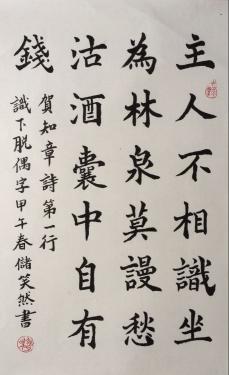 主人不相識坐
為林泉莫謾愁
沽酒囊中自有
錢
賀知章詩第一行
識下脫偶字甲午春儲笑然書